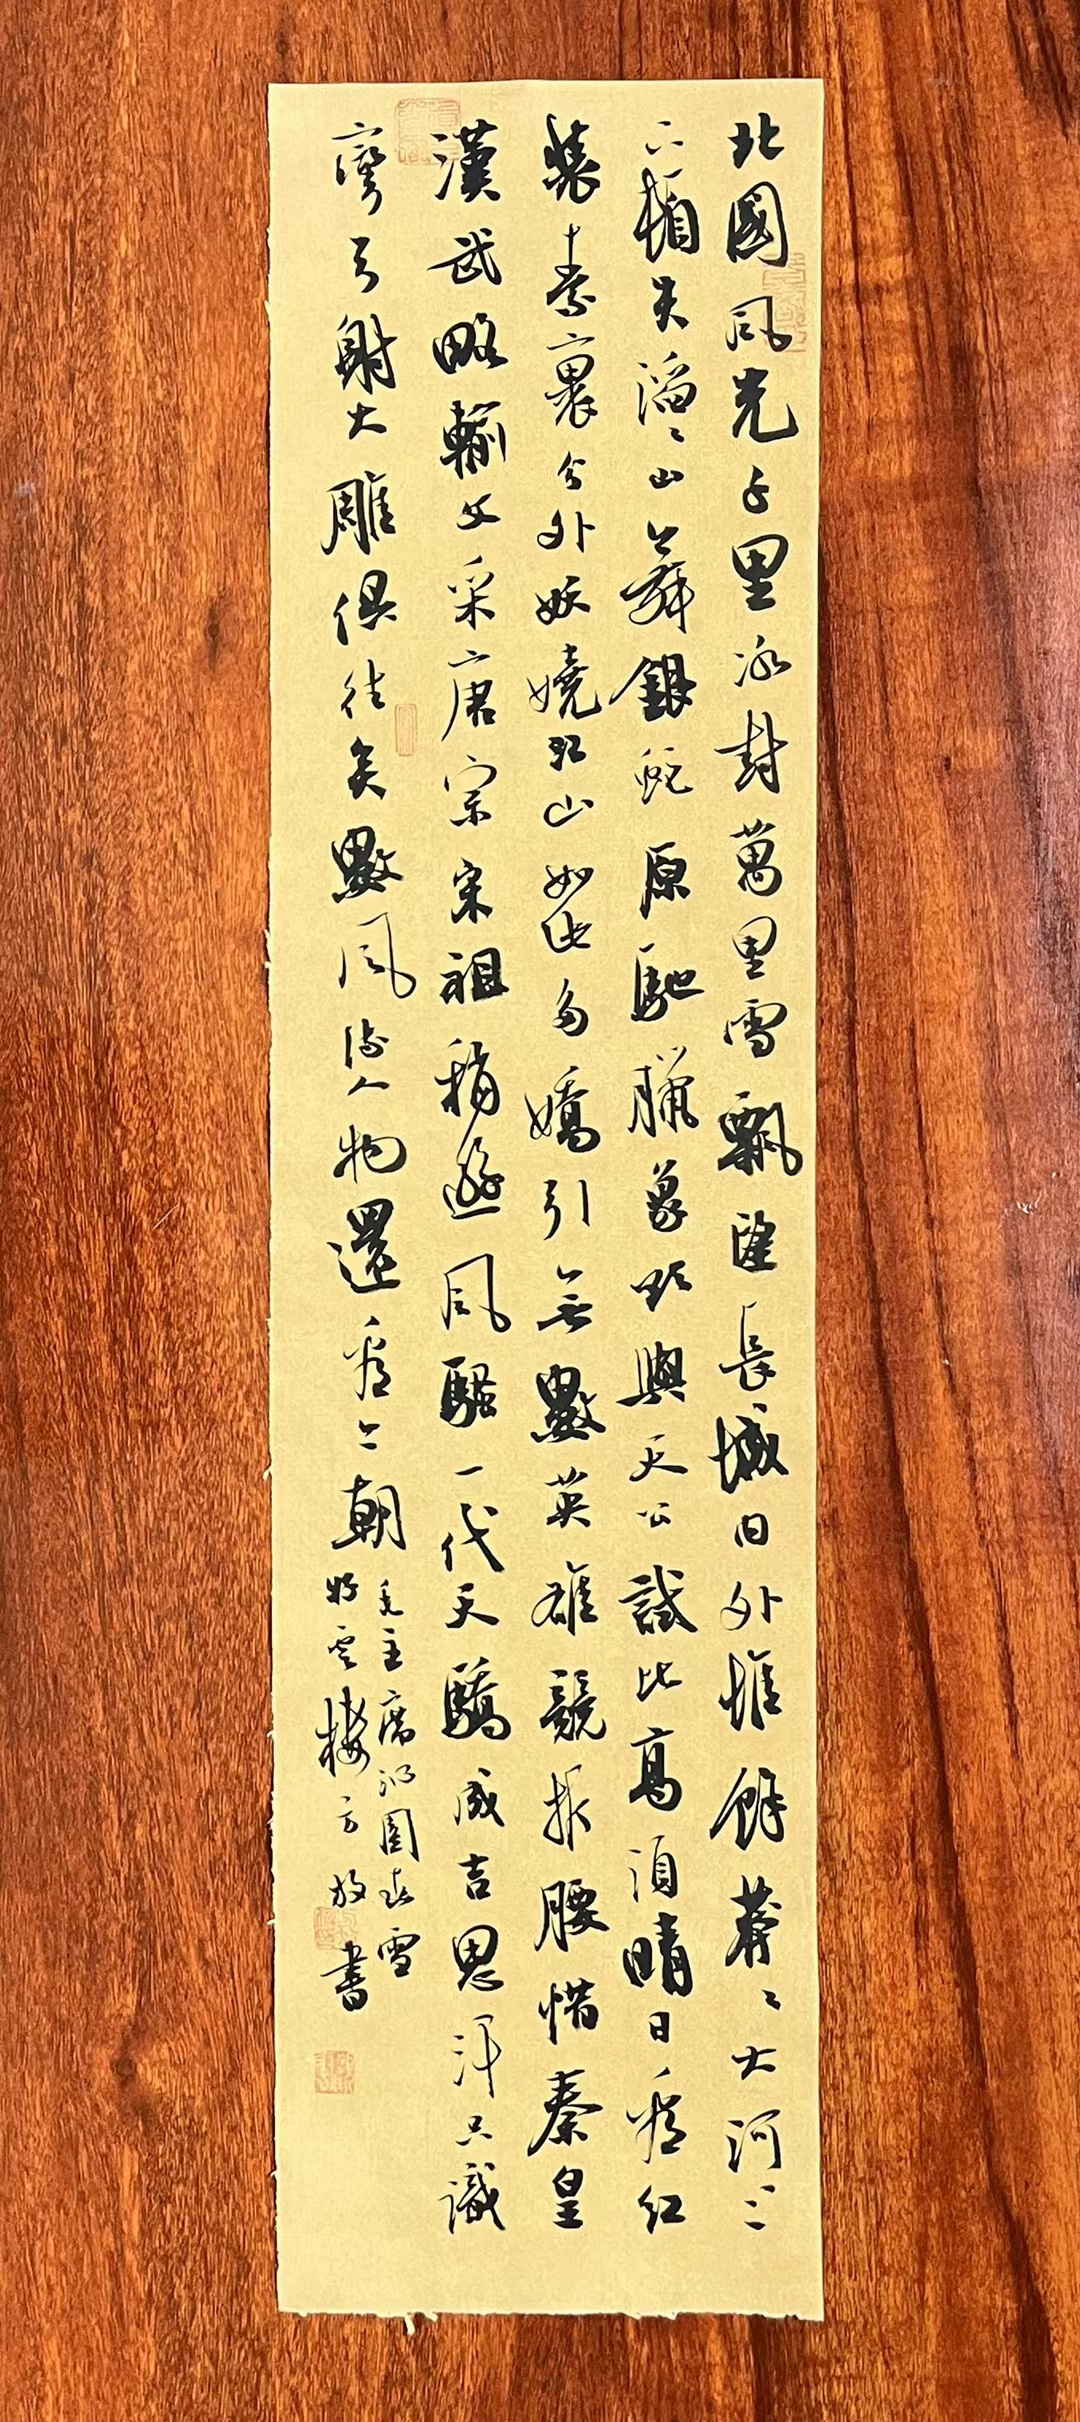 北國風光千里冰封萬里雪飄望長城内外惟餘莽〻大河上
下頓失滔〻山舞銀蛇原馳臘象欲與天公試比高須晴日看紅
裝素裹分外妖嬈江山如此多嬌引無數英雄競折腰惜秦皇
漢武略輸文采唐宗宋祖稍遜風騷一代天驕成吉思汗只識
彎弓射大雕俱往矣數風流人物還看今朝
毛主席沁園春雪
好雲樓方放書